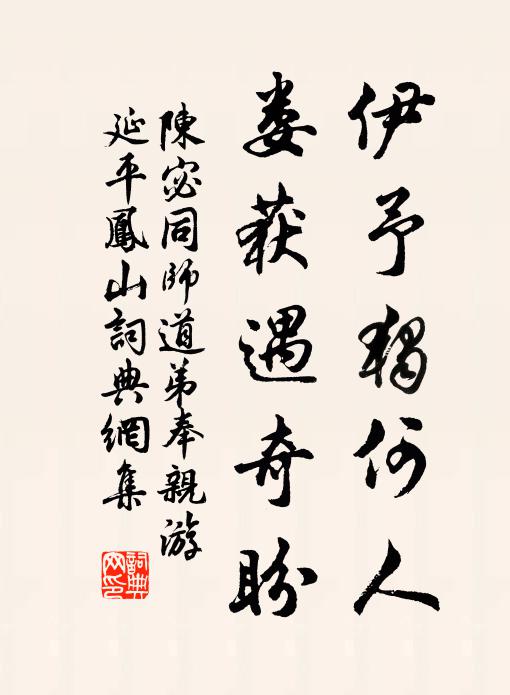 伊予獨何人
婁获遇奇盼
陳宓同師道弟奉親游
延平鳳山詞典網集
詞典網印